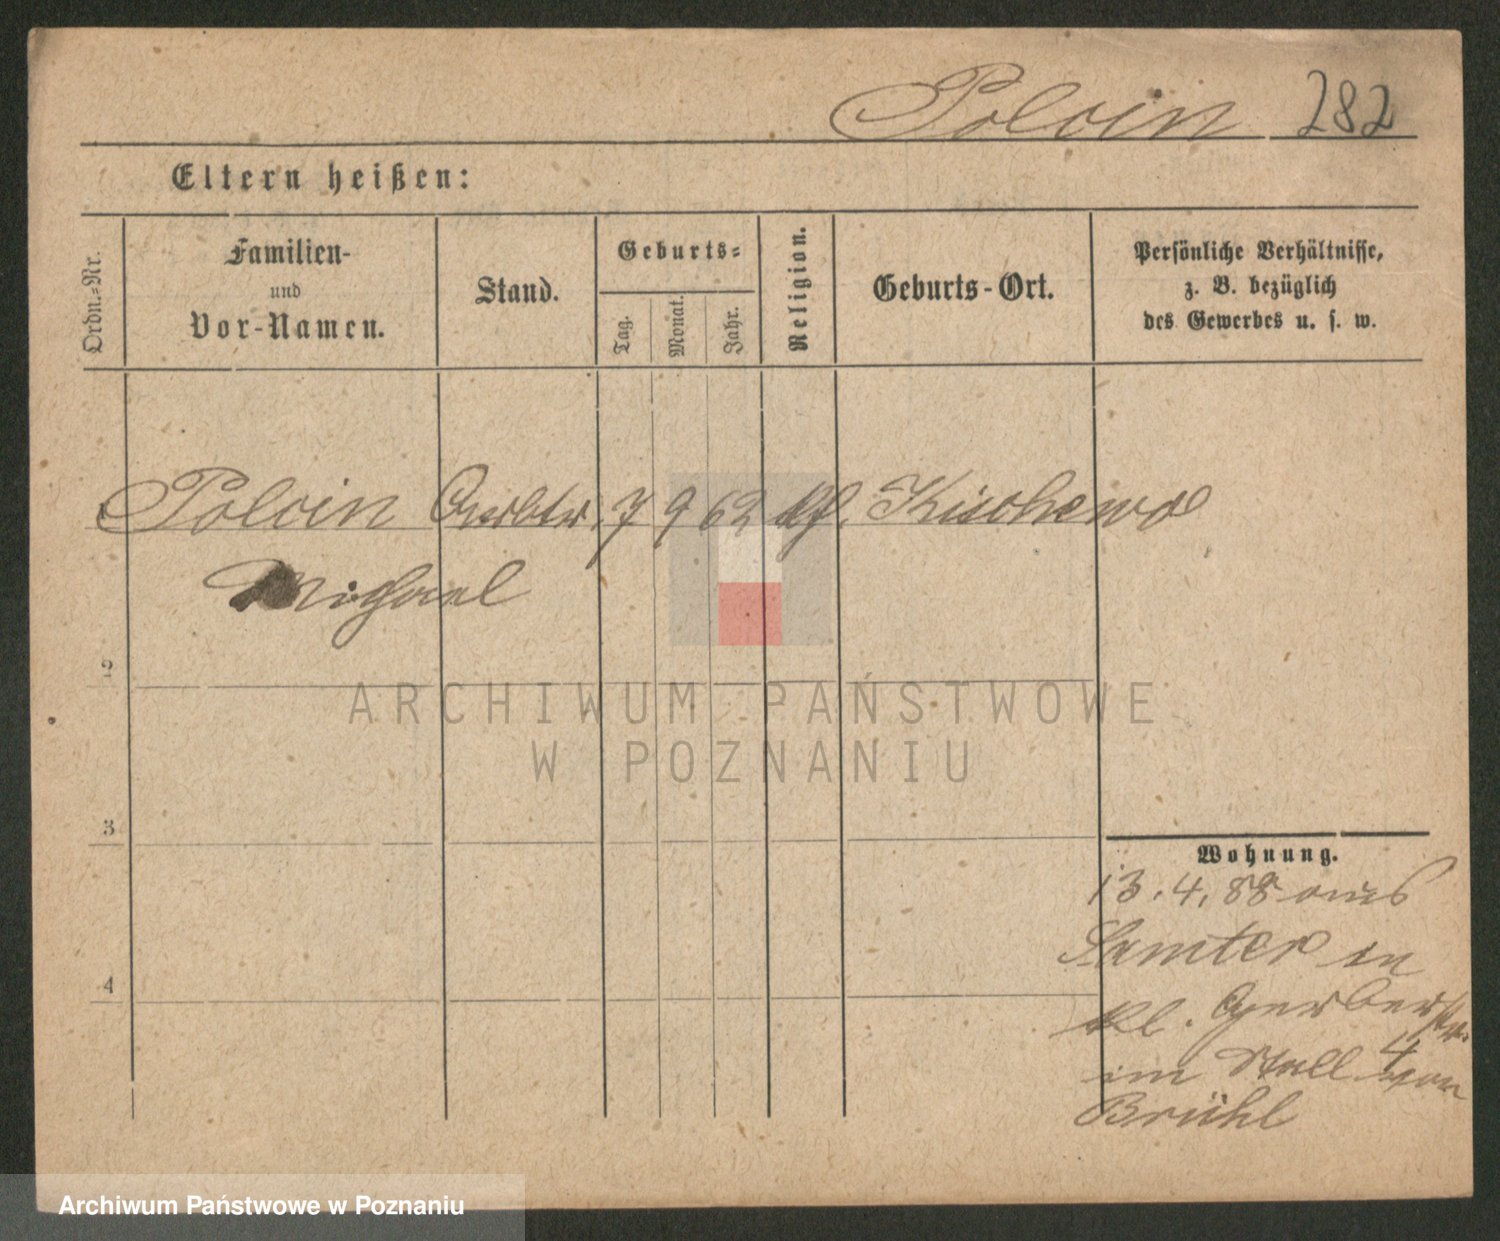 Polcin 282
Eltern heißen:
Ordn.-Nr.
Familien-
und
Vor-Namen.
Stand.
Geburts-
Tag.
Monat.
Jahr.
Religion.
Geburts-Ort.
Persönliche Verhältnisse,
z. B. bezüglich
des Gewerbes u. s. w.
Polcin Arbtr. 7 9 62 kf. Kischewo
Michael
2
3
4
Wohnung.
13.4.88 aus
Samter in
kl. Gerberstr.
4
im Stall von
Brühl
ARCHIWUM PAŃSTWOWE
W POZNANIU
Archiwum Państwowe w Poznaniu